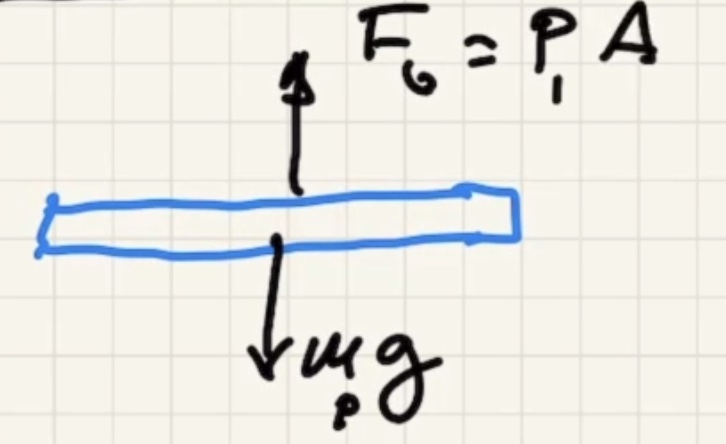 F₆ = P₁ A
mₚg